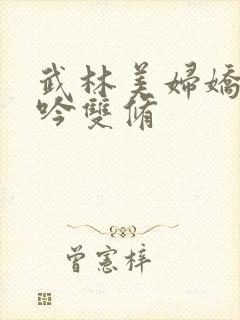 武林美婦嬌
吟雙脩
曾憲梓